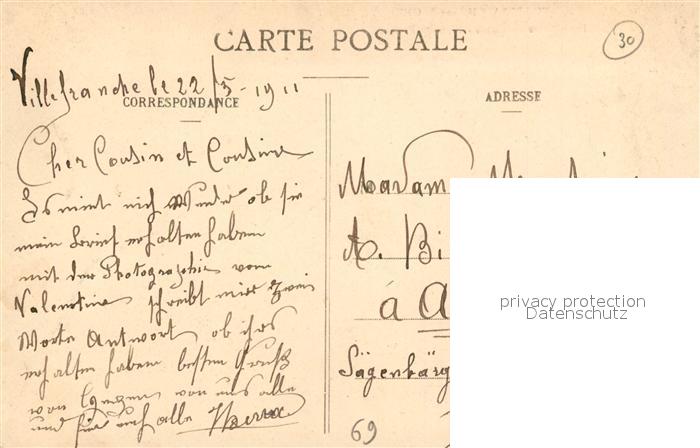 CARTE POSTALE
30
Villefranche le 22/5 - 1911
CORRESPONDANCE
ADRESSE
Cher Cousin et Cousine
Es nimt mich Wunder ob sie
mein brief erhalten haben
mit der Photographie vom
Valentine schreibt mier zwei
Worte Antwort ob ihrs
erhalten haben besten Gruß
von uns alle
und für euch alle
Madam
A. Bi
á A
Sägenbärg
69
privacy protection
Datenschutz